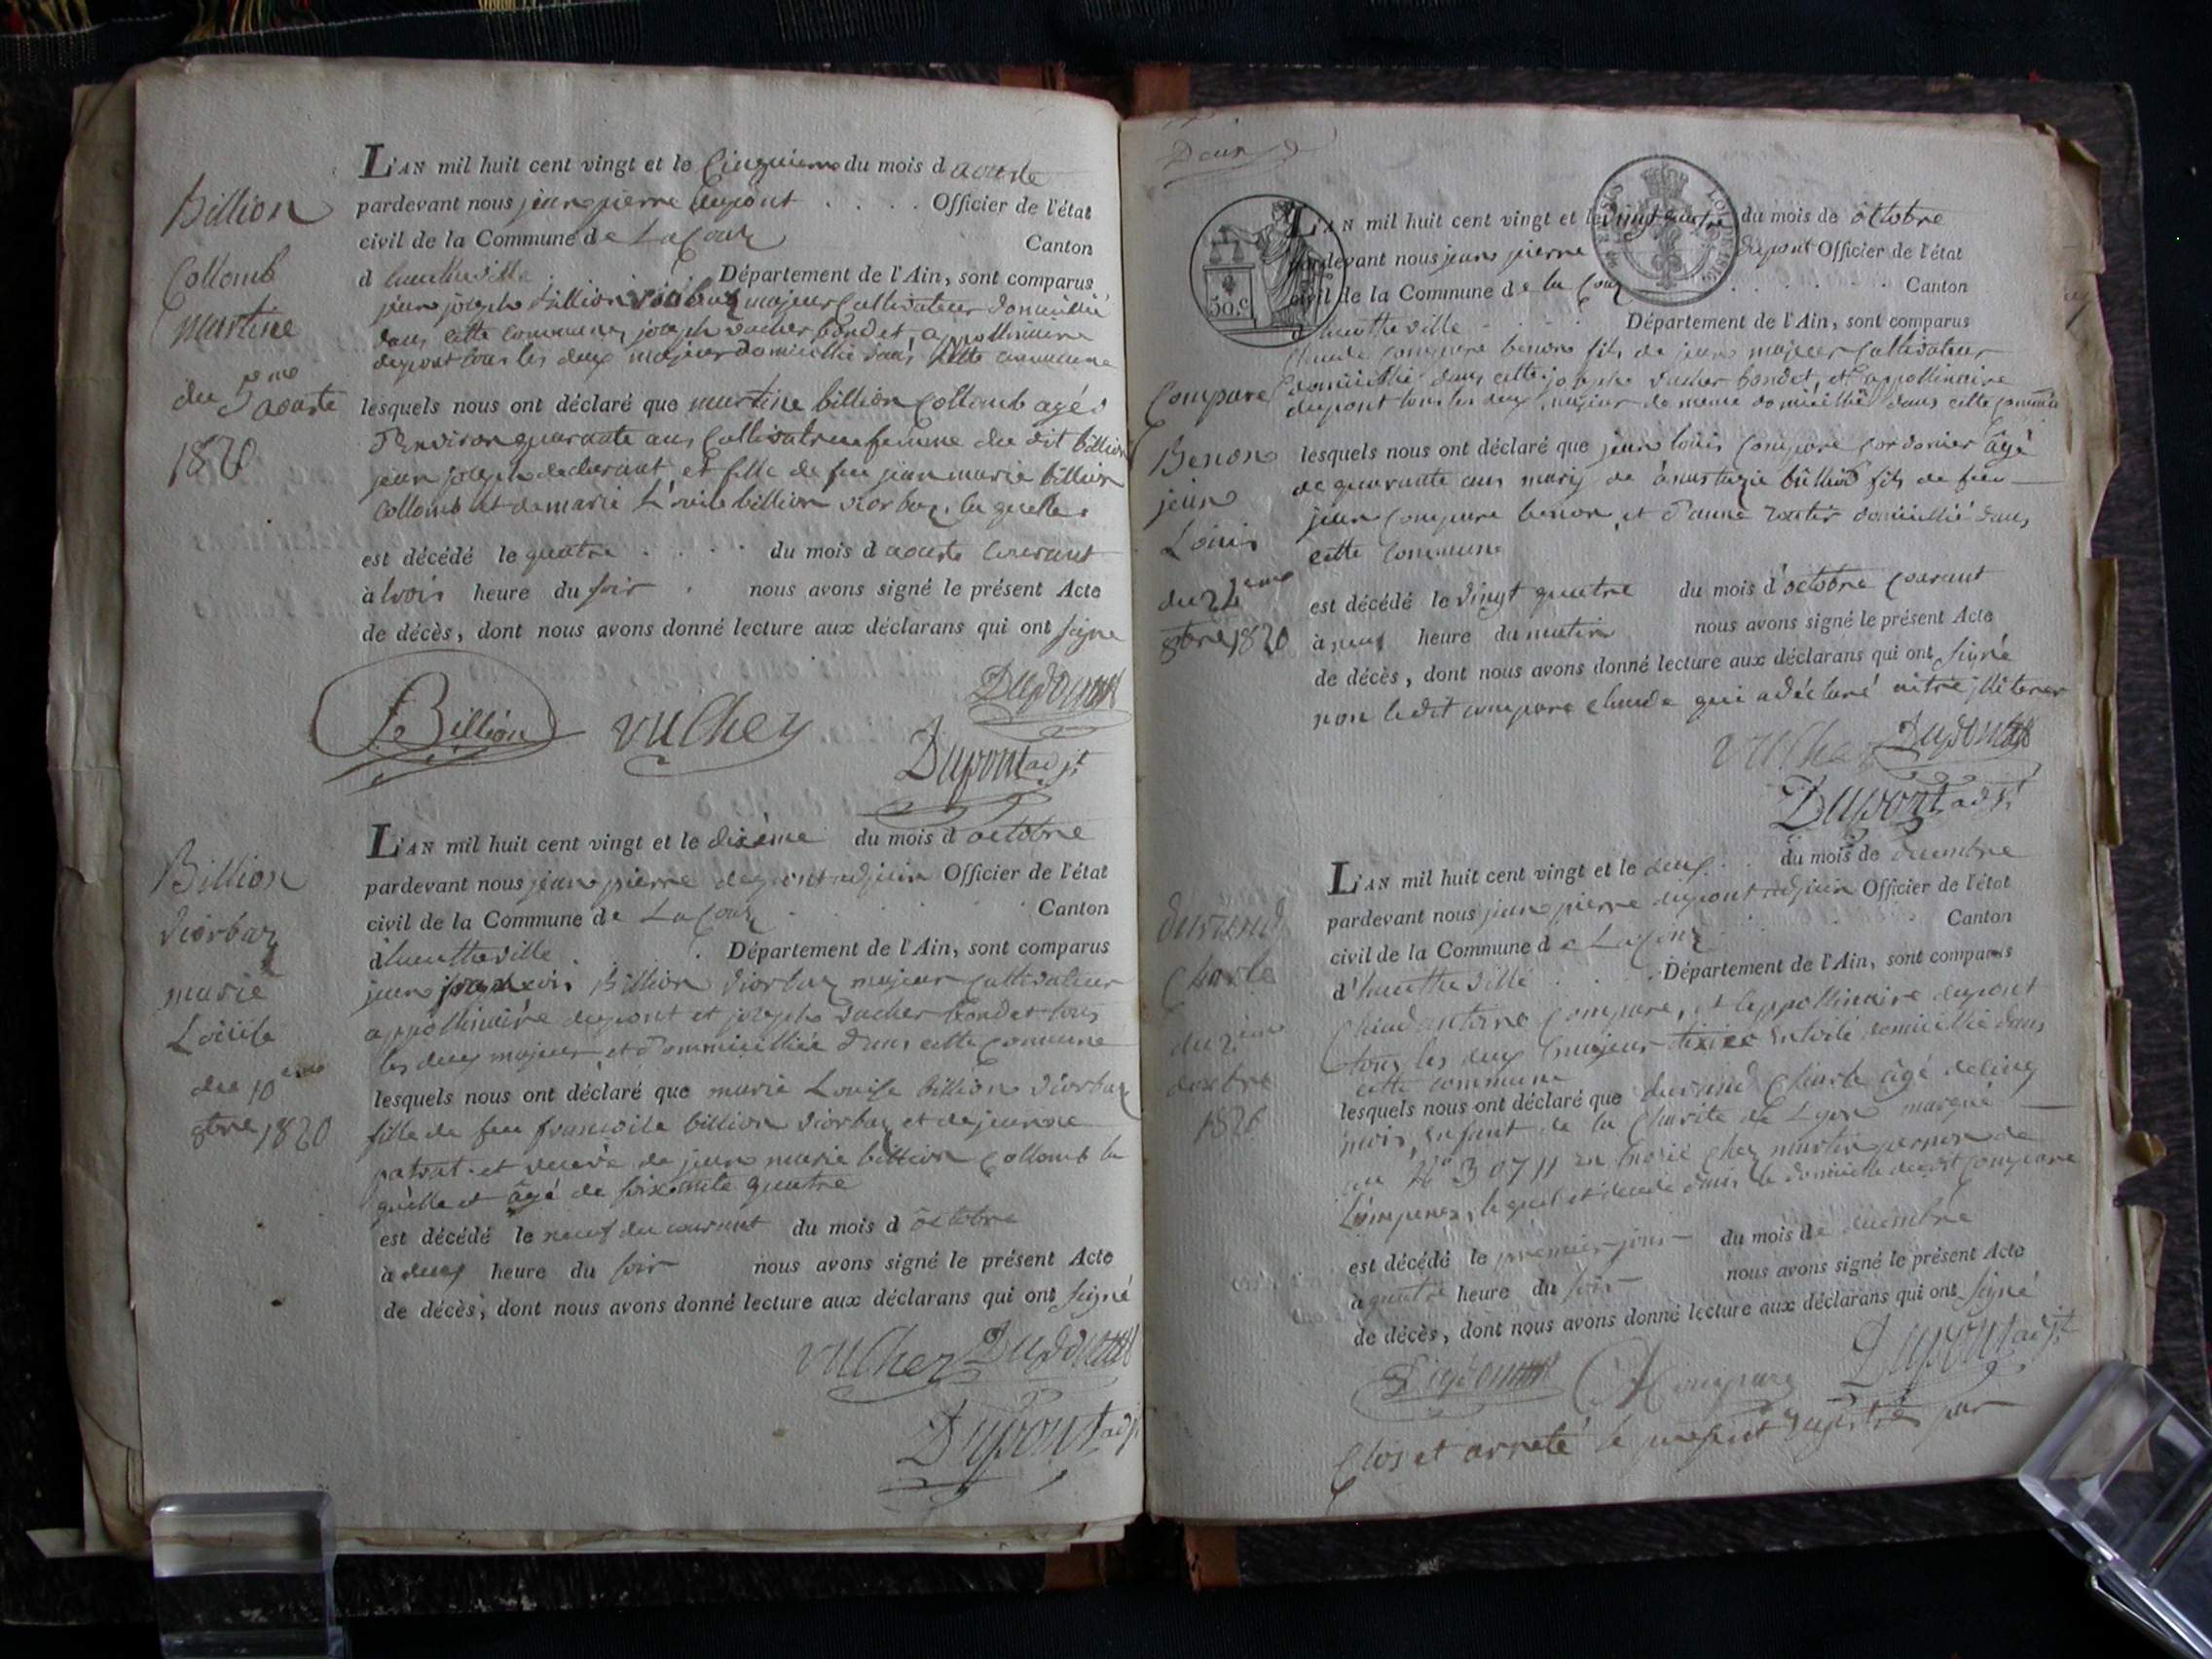 Billion
Collomb
martine
du 5eme
aouste
1820
L'AN mil huit cent vingt et le Cinquieme du mois d aouste
pardevant nous jean pierre dupont . . . . Officier de l'état
civil de la Commune de Lacoux Canton
d hauteville Département de l'Ain, sont comparus
jean joseph billion majeur Cultivateur domicillié
dans cette commune, joseph vucher bondet, appollinaire
dupont tous les deux majeur domicillié dans cette commune
lesquels nous ont déclaré que martine billion Collomb agée
d'Environ quarante ans Cultivatrice femme du dit billion
jean joseph declarant et fille de feu jean marie billion
Collomb et de marie Louise billion viorbaz, la quelle
est décédé le quatre . . . . du mois d aouste Courant
à trois heure du soir . nous avons signé le présent Acte
de décès, dont nous avons donné lecture aux déclarans qui ont signe
Billion vucher Dupont
Dupont adjt
Billion
viorbaz
marie
Louise
du 10eme
8bre 1820
L'AN mil huit cent vingt et le dixème du mois d octobre
pardevant nous jean pierre dupont adjoin Officier de l'état
civil de la Commune de Lacoux Canton
d'hautheville Département de l'Ain, sont comparus
jean francois Billion viorbaz majeur cultivateur
appollinaire dupont et joseph vucher bondet tous
les deux majeur et domicillié dans cette commune
lesquels nous ont déclaré que marie Louise billion viorbaz
fille de feu francoise billion viorbaz et de jeanne
et veuve de jean marie billion Collomb la
quelle et âgé de soixante quatre
est décédé le neuf du courant du mois d octobre
à deux heure du soir nous avons signé le présent Acte
de décès, dont nous avons donné lecture aux déclarans qui ont signé
vucher Dupont
Dupont adjt
Deux
50 c.
Compare
Benon
jean
Louis
du 24eme
8bre 1820
L'AN mil huit cent vingt et le vingt quatre du mois de octobre
pardevant nous jean pierre dupont Officier de l'état
civil de la Commune de la Coux Canton
d'hautheville Département de l'Ain, sont comparus
Claude compare benon fils de jean majeur Cultivateur
domicillié dans cette joseph vucher bondet, et appollinaire
dupont tous les deux majeur de meme domicillié dans cette commune
lesquels nous ont déclaré que jean louis compare cordonier âgé
de quarante ans mary de anastazie billiod fils de feu
jean compare benon et d'anne domicillié dans
cette commune
est décédé le vingt quatre du mois d'octobre courant
à neuf heure du matin nous avons signé le présent Acte
de décès, dont nous avons donné lecture aux déclarans qui ont signé
non ledit compare claude qui a déclaré
vucher Dupont
Dupont adjt
durand
Charle
du 2eme
decbre
1820
L'AN mil huit cent vingt et le deux . . du mois de decembre
pardevant nous jean pierre dupont adjoin Officier de l'état
civil de la Commune de Lacoux Canton
d'hautheville . . . Département de l'Ain, sont comparus
Claud antoine Compare, et appollinaire dupont
tous les deux majeur domicillié dans
cette commune
lesquels nous ont déclaré que durand Charle âgé de cinq
mois, enfant de la Charité de Lyon marqué
au N° 30711 chez martin de
Lompenes, le quel et dans le domicille dudit compare
est décédé le premier jour du mois de decembre
à quatre heure du soir nous avons signé le présent Acte
de décès, dont nous avons donné lecture aux déclarans qui ont signé
Dupont Compare Dupont adjt
Clos et arreté le present registre par